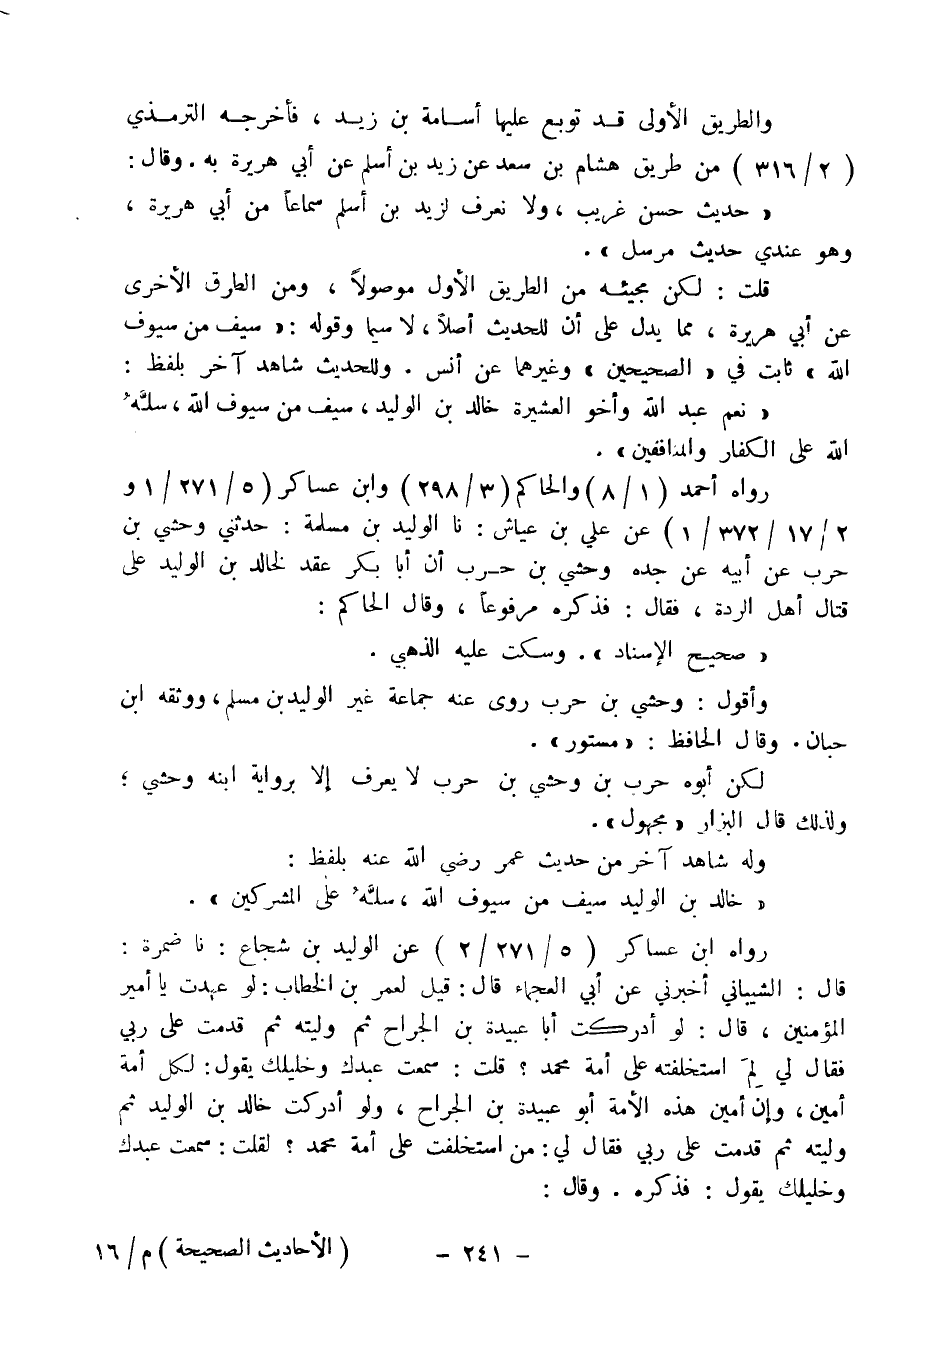 والطريق الأولى قد توبع عليها أسامة بن زيد ، فأخرجه الترمذي
( ٢ / ٣١٦ ) من طريق هشام بن سعد عن زيد بن أسلم عن أبي هريرة به . وقال :
« حديث حسن غريب ، ولا نعرف لزيد بن أسلم سماعاً من أبي هريرة ،
وهو عندي حديث مرسل » .
قلت : لكن مجيئه من الطريق الأول موصولاً ، ومن الطرق الأخرى
عن أبي هريرة ، مما يدل على أن للحديث أصلاً ، لا سيما وقوله : « سيف من سيوف
الله » ثابت في « الصحيحين » وغيرهما عن أنس . وللحديث شاهد آخر بلفظ :
« نعم عبد الله وأخو العشيرة خالد بن الوليد ، سيف من سيوف الله ، سلَّهُ
الله على الكفار والمنافقين » .
رواه أحمد ( ١ / ٨ ) والحاكم ( ٣ / ٢٩٨ ) وابن عساكر ( ٥ / ٢٧١ / ١ و
٢ / ١٧ / ٣٧٢ / ١ ) عن علي بن عياش : نا الوليد بن مسلمة : حدثني وحشي بن
حرب عن أبيه عن جده وحشي بن حرب أن أبا بكر عقد لخالد بن الوليد على
قتال أهل الردة ، فقال : فذكره مرفوعاً ، وقال الحاكم :
« صحيح الإسناد » . وسكت عليه الذهبي .
وأقول : وحشي بن حرب روى عنه جماعة غير الوليد بن مسلم ، ووثقه ابن
حبان . وقال الحافظ : « مستور » .
لكن أبوه حرب بن وحشي بن حرب لا يعرف إلا برواية ابنه وحشي ؛
ولذلك قال البزار « مجهول » .
وله شاهد آخر من حديث عمر رضي الله عنه بلفظ :
« خالد بن الوليد سيف من سيوف الله ، سلَّهُ على المشركين » .
رواه ابن عساكر ( ٥ / ٢٧١ / ٢ ) عن الوليد بن شجاع : نا ضمرة :
قال : الشيباني أخبرني عن أبي العجماء قال : قيل لعمر بن الخطاب : لو عهدت يا أمير
المؤمنين ، قال : لو أدركت أبا عبيدة بن الجراح ثم وليته ثم قدمت على ربي
فقال لي لِمَ استخلفته على أمة محمد ؟ قلت : سمعت عبدك وخليلك يقول : لكل أمة
أمين ، وإن أمين هذه الأمة أبو عبيدة بن الجراح ، ولو أدركت خالد بن الوليد ثم
وليته ثم قدمت على ربي فقال لي : من استخلفت على أمة محمد ؟ لقلت : سمعت عبدك
وخليلك يقول : فذكره . وقال :
- ٢٤١ - ( الأحاديث الصحيحة ) م / ١٦